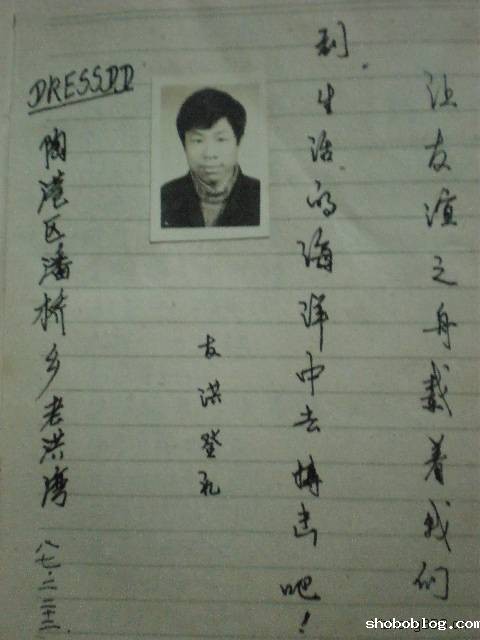 让友谊之舟载着我们
到生活的海洋中去搏击吧！
友洪登礼
DRESSDD
陶港区潘桥乡老洪湾
八七.二.二十二.
shoboblog.com